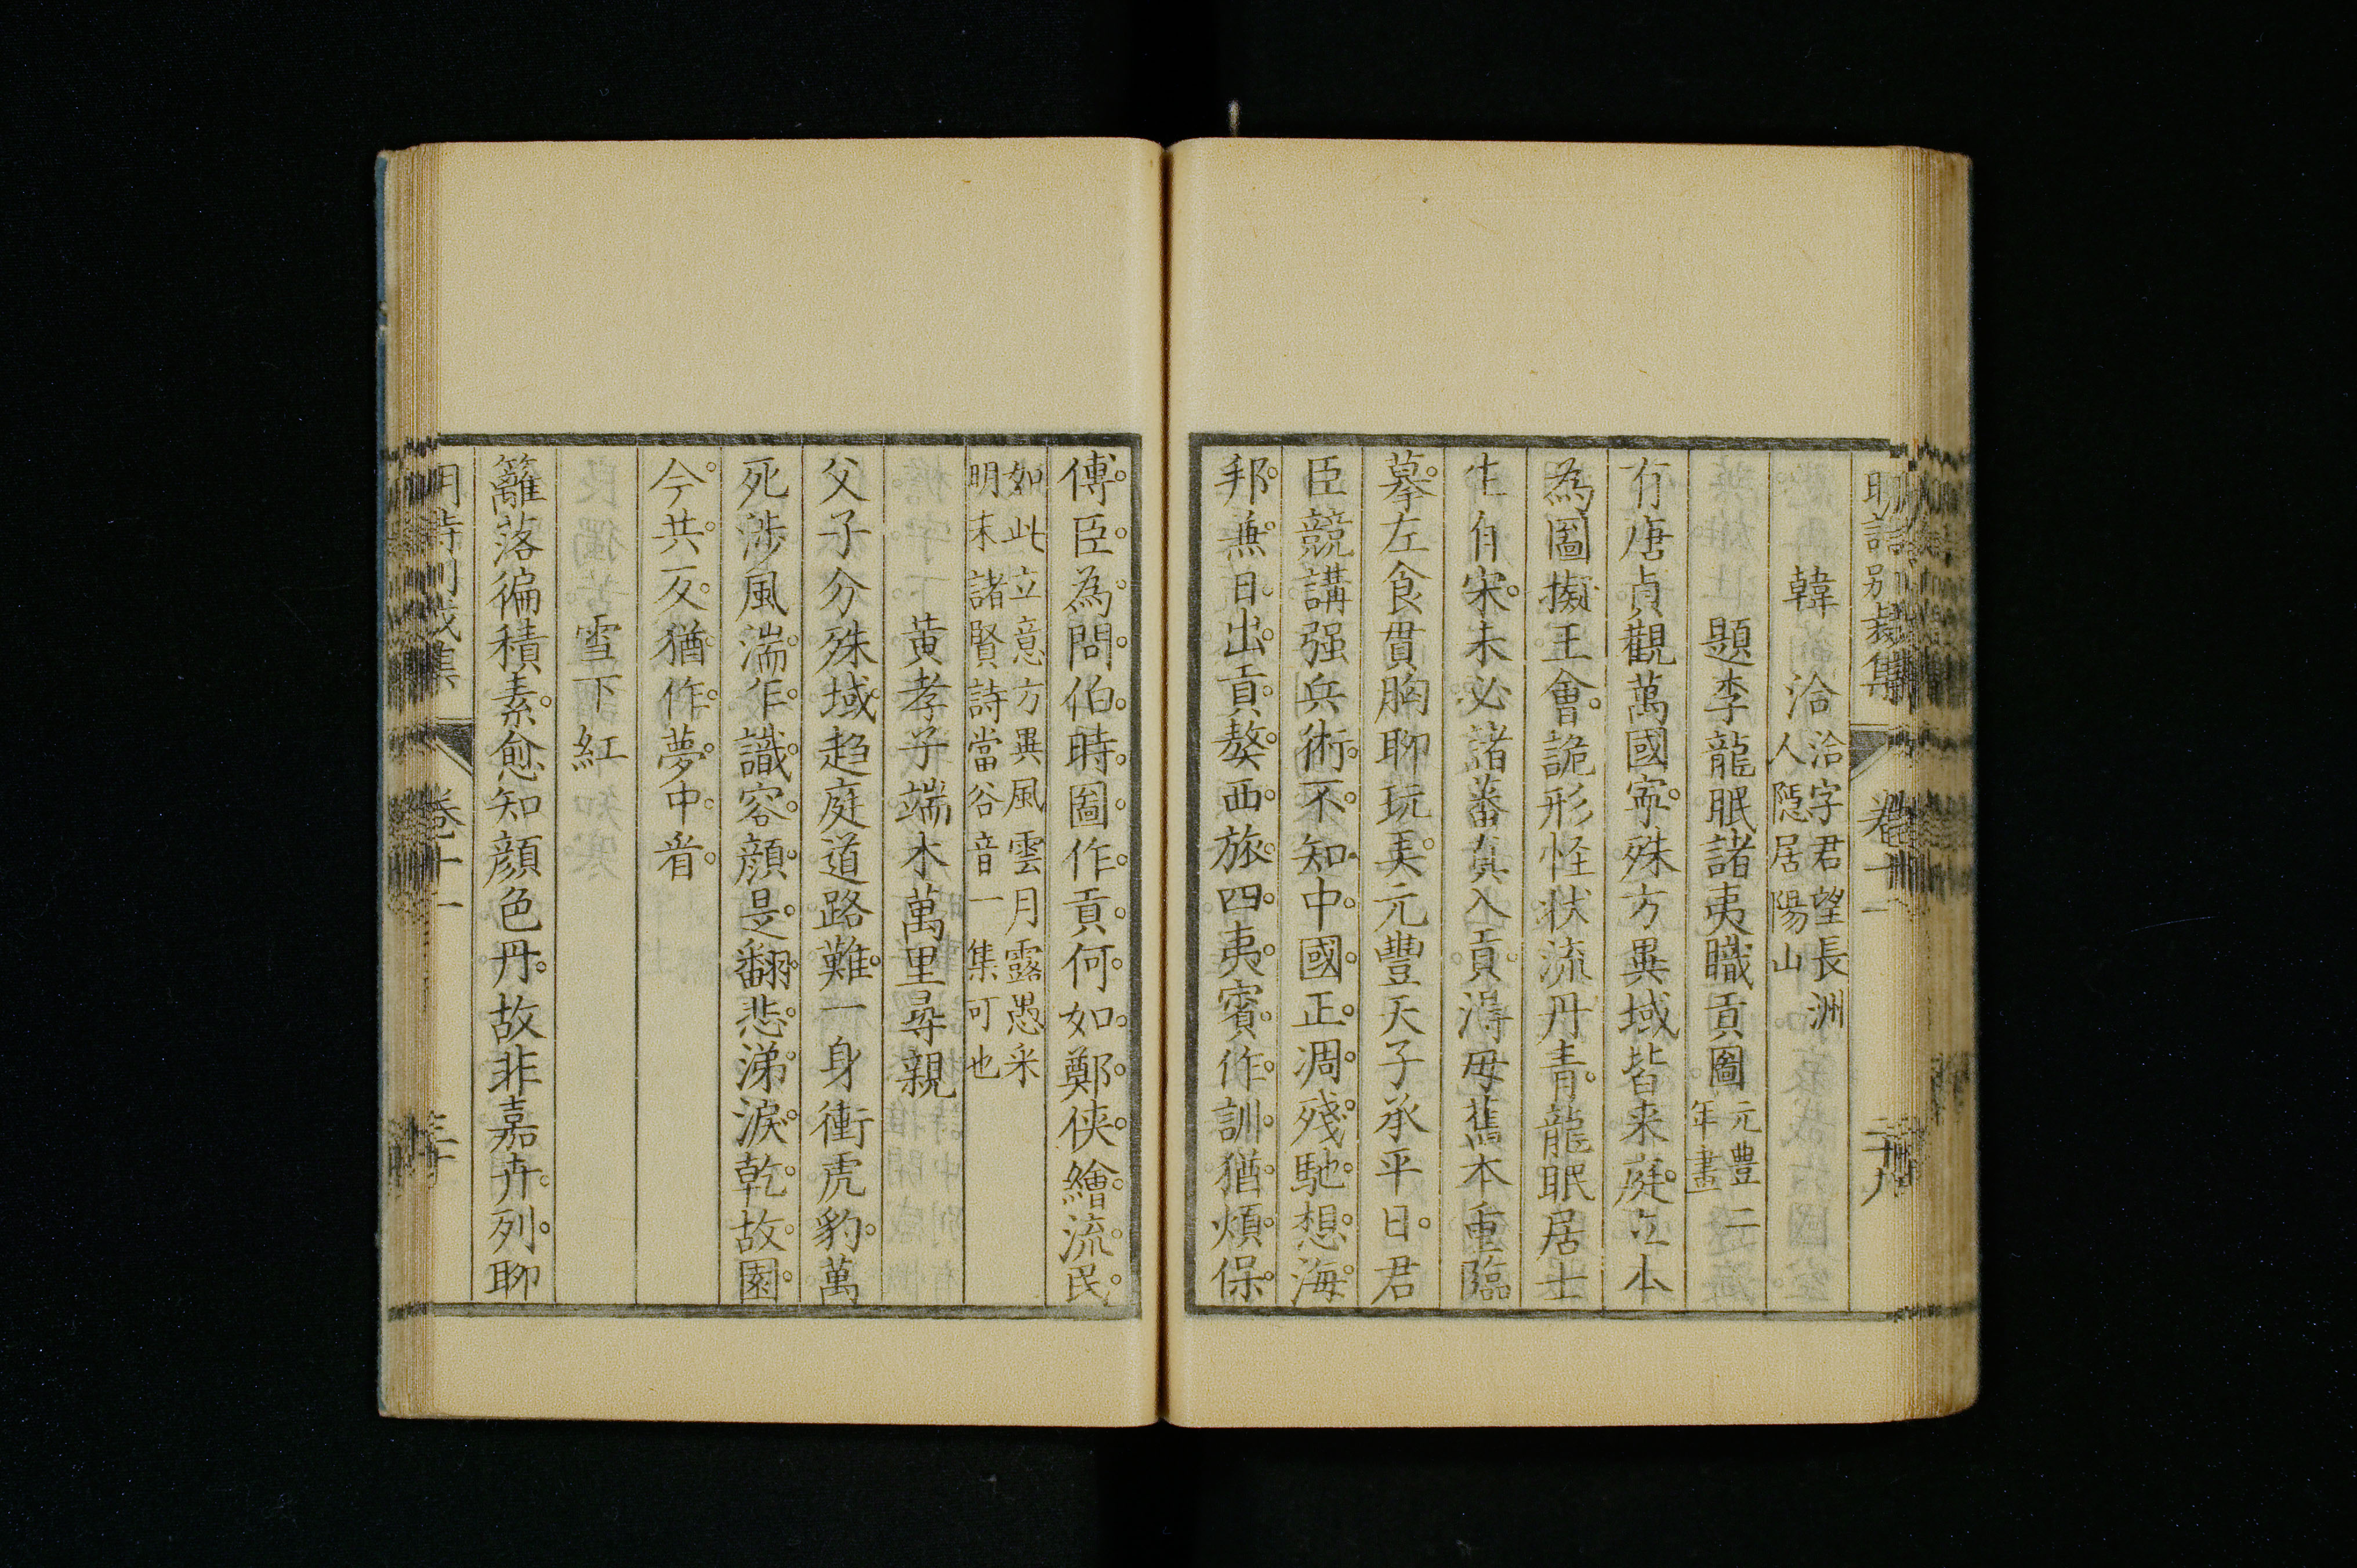 明詩別裁集 卷十一 二十九
韓洽 洽字君望長洲人隱居陽山
題李龍眠諸夷職貢圖 元豊二年畫
有唐貞觀萬國寧。殊方異域皆来庭。立本
為圖擬王會。詭形怪状流丹青。龍眠居士
生自宋。未必諸蕃真入貢。得毋舊本重臨
摹。左食貫胸聊玩弄。元豐天子承平日。君
臣競講强兵術。不知中國正凋殘。馳想海
邦。無日出。貢獒西旅。四夷賓。作訓猶煩保
傅臣。為問伯時圖作貢。何如鄭侠繪流民。
如此立意方異風雲月露愚采
明末諸賢詩當谷音一集可也
黄孝子端木萬里尋親
父子分殊域。趋庭道路難。一身衝虎豹。萬
死渉風湍。乍識容顔是。翻悲涕淚乾。故園
今共反。猶作夢中看。
雪下紅
籬落徧積素。愈知顔色丹。故非嘉卉列。聊
卷十一 三十